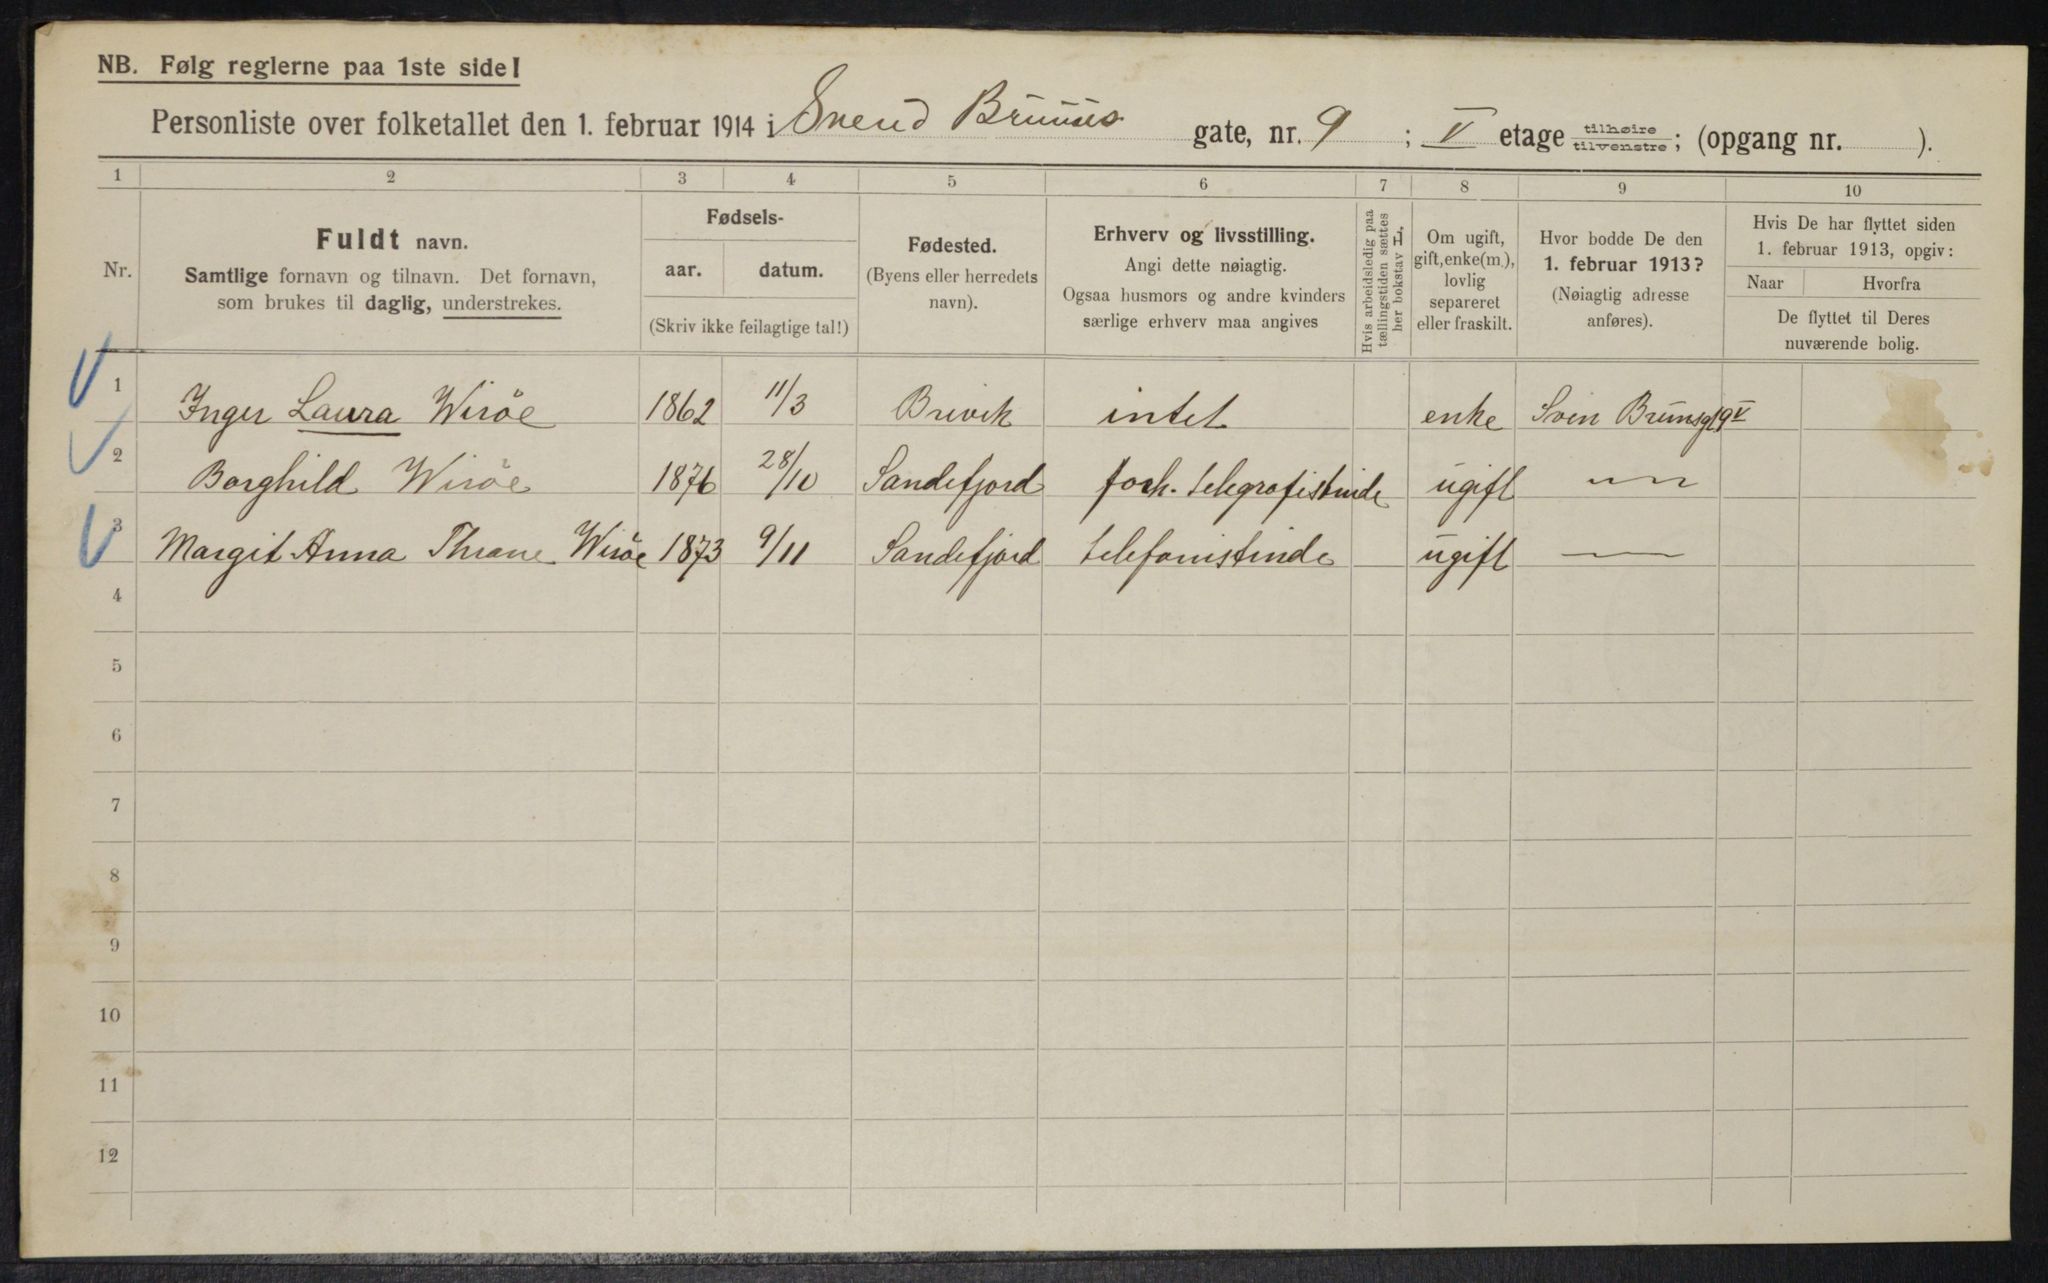 NB. Følg reglerne paa 1ste side!
Personliste over folketallet den 1. februar 1914 i Svend Bruuns gate, nr. 9 ; V etage tilhøire tilvenstre ; (opgang nr. ).
1 2 3 4 5 6 7 8 9 10
Nr.
Fuldt navn.
Samtlige fornavn og tilnavn. Det fornavn,
som brukes til daglig, understrekes.
Fødsels-
aar. datum.
(Skriv ikke feilagtige tal!)
Fødested.
(Byens eller herredets
navn).
Erhverv og livsstilling.
Angi dette nøiagtig.
Ogsaa husmors og andre kvinders
særlige erhverv maa angives
Hvis arbeidsledig paa
tællingstiden sættes
her bokstav L.
Om ugift,
gift, enke(m.),
lovlig
separeret
eller fraskilt.
Hvor bodde De den
1. februar 1913?
(Nøiagtig adresse
anføres).
Hvis De har flyttet siden
1. februar 1913, opgiv:
Naar Hvorfra
De flyttet til Deres
nuværende bolig.
1 Inger Laura Wirøe 1862 11/3 Brevik intet enke Sven Brunsgt 9 V
2 Borghild Wirøe 1876 28/10 Sandefjord forh. telegrafistinde ugift — " —
3 Margit Anna Thrane Wirøe 1873 9/11 Sandefjord telefonistinde ugift — " —
4
5
6
7
8
9
10
11
12